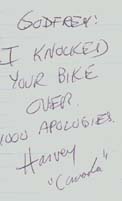 GODFREY:
I KNOCKED
YOUR BIKE
OVER.
1000 APOLOGIES.
Harvey
"Canada"